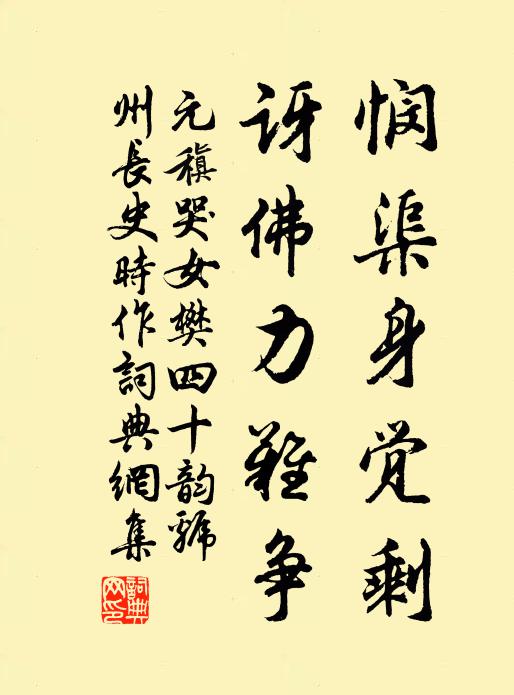 悯渠身觉剩
讶佛力难争
元稹哭女樊四十韵虢
州長史時作詞典網集
詞典網印